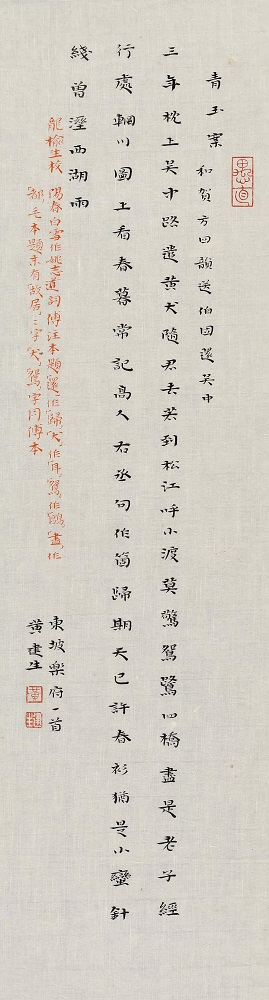 青玉案 和賀方回韻送伯固還吳中
三年枕上吳中路遣黃犬隨君去若到松江呼小渡莫驚鴛鷺四橋盡是老子經
行處輞川圖上看春暮常記高人右丞句作箇歸期天已許春衫猶是小蠻針
綫曾溼西湖雨
龍榆生校 陽春白雪作姚志道詞傅注本題還作歸犬作耳鴛作鷗盡作
鄰毛本題末有故居二字犬鴛字同傅本
東坡樂府一首
黃建生
思直